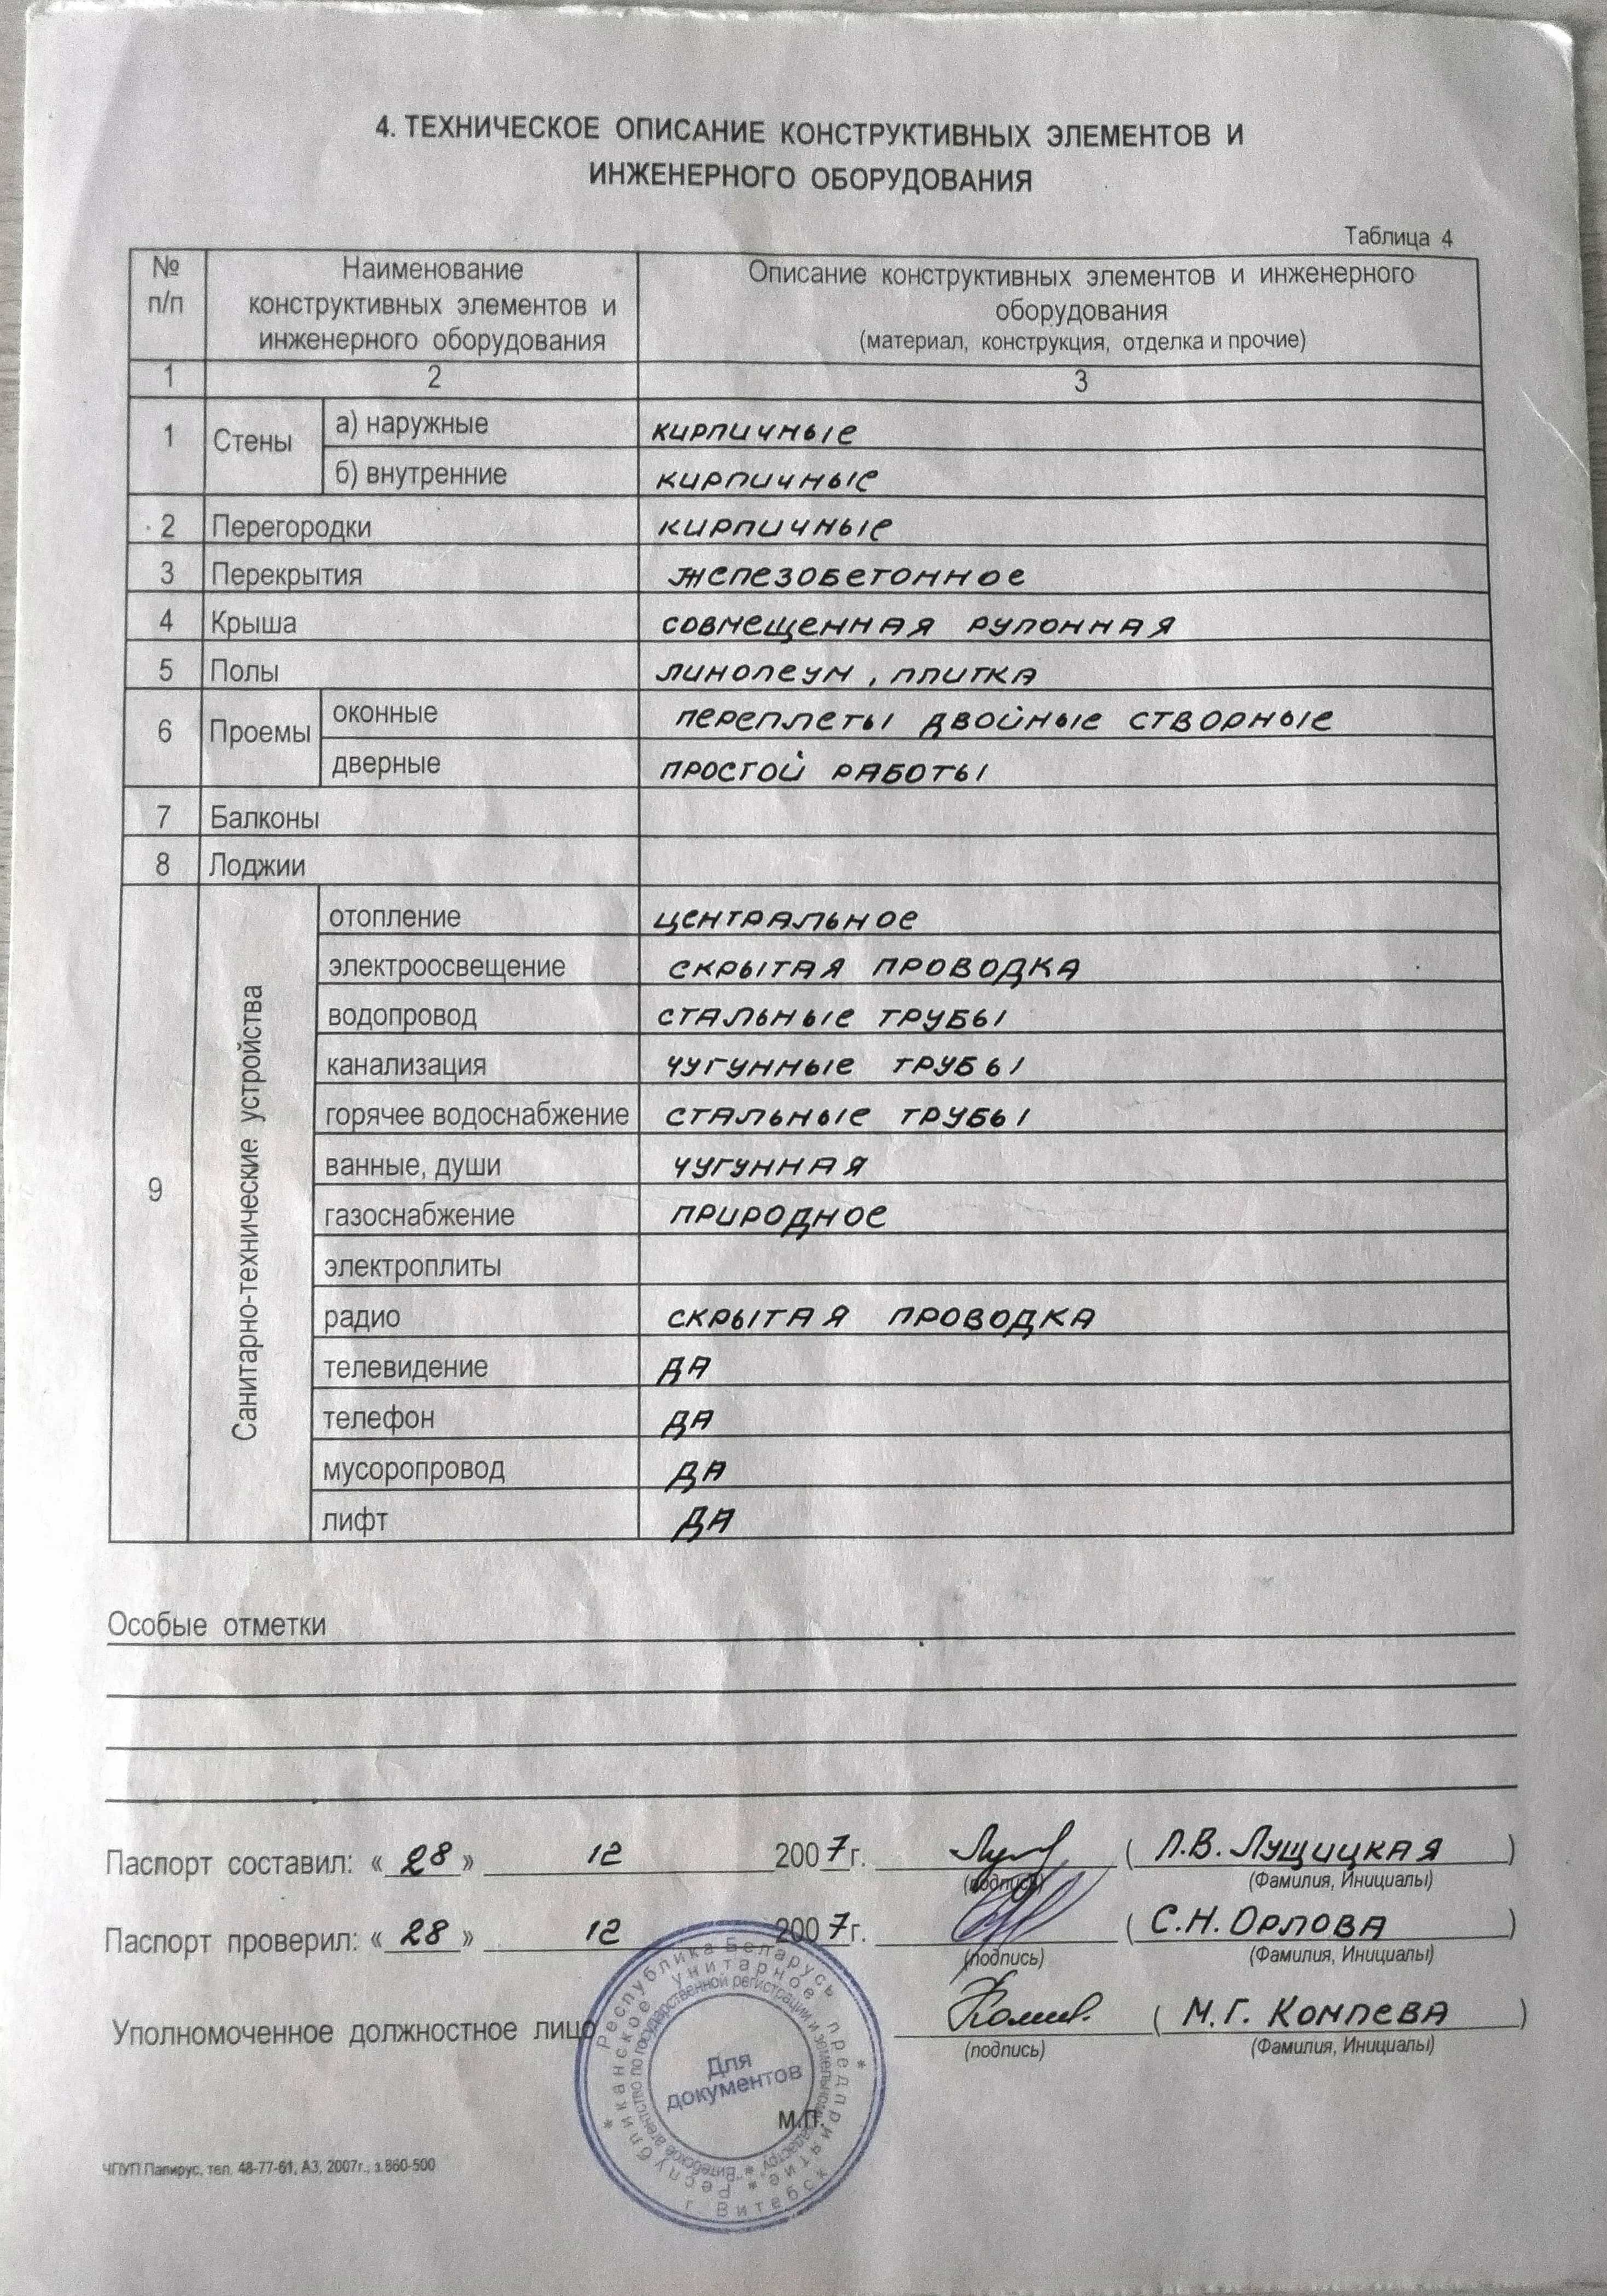 4. ТЕХНИЧЕСКОЕ ОПИСАНИЕ КОНСТРУКТИВНЫХ ЭЛЕМЕНТОВ И
ИНЖЕНЕРНОГО ОБОРУДОВАНИЯ
Таблица 4
№ п/п
Наименование
конструктивных элементов и
инженерного оборудования
Описание конструктивных элементов и инженерного
оборудования
(материал, конструкция, отделка и прочие)
1 2 3
1 Стены а) наружные кирпичные
б) внутренние кирпичные
2 Перегородки кирпичные
3 Перекрытия железобетонное
4 Крыша совмещенная рулонная
5 Полы линолеум, плитка
6 Проемы оконные переплеты двойные створные
дверные простой работы
7 Балконы
8 Лоджии
9 Санитарно-технические устройства
отопление центральное
электроосвещение скрытая проводка
водопровод стальные трубы
канализация чугунные трубы
горячее водоснабжение стальные трубы
ванные, души чугунная
газоснабжение природное
электроплиты
радио скрытая проводка
телевидение да
телефон да
мусоропровод да
лифт да
Особые отметки
Паспорт составил: « 28 » 12 2007г. ( Л.В. Лущицкая )
(подпись) (Фамилия, Инициалы)
Паспорт проверил: « 28 » 12 2007г. ( С.Н. Орлова )
(подпись) (Фамилия, Инициалы)
Уполномоченное должностное лицо ( М.Г. Комлева )
(подпись) (Фамилия, Инициалы)
М.П.
Республика Беларусь
г. Витебск
Республиканское унитарное предприятие
"Витебское агентство по государственной регистрации и земельному кадастру"
Для
документов
ЧПУП Папирус, тел. 48-77-61, А3, 2007г., з.860-500